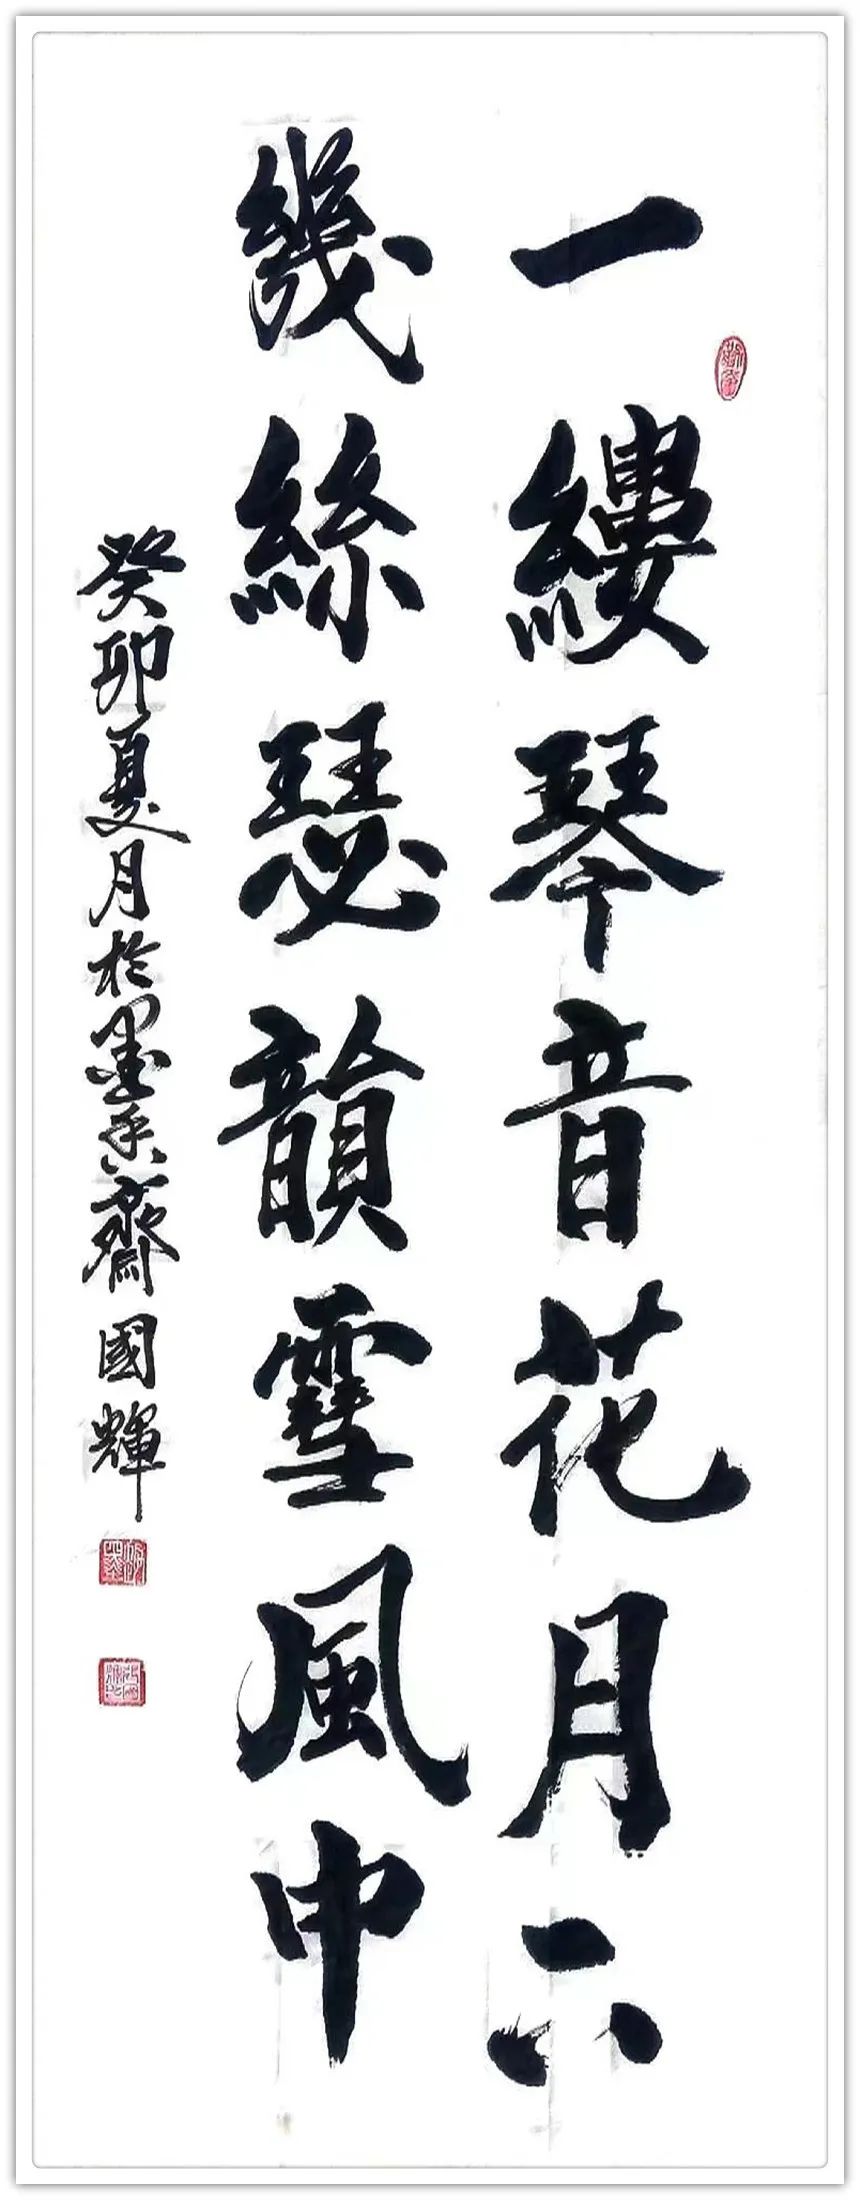 一縷琴音花月下
幾絲瑟韻雪風中
癸卯夏月於墨香齋國輝